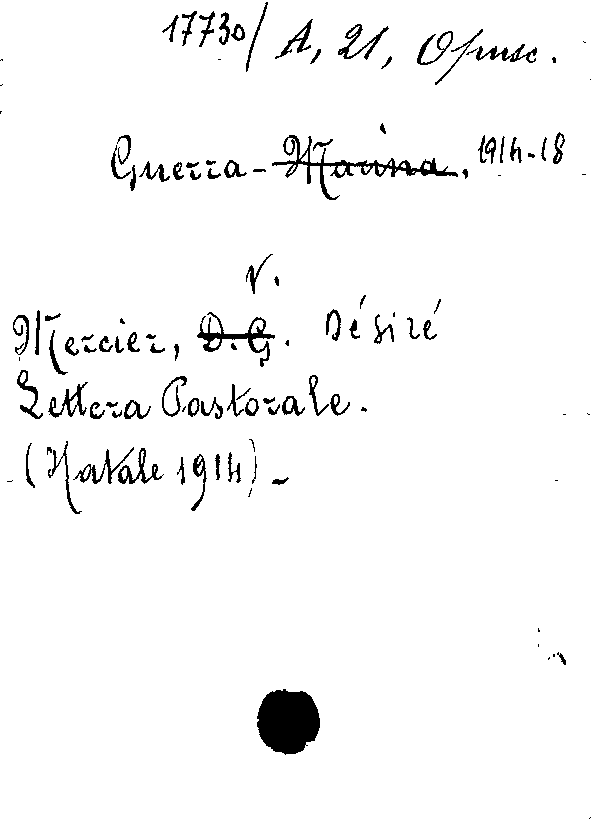 17730/ A, 21, Opusc.
Guerra - Marina. 1914-18
V.
Mercier, D. G. Désiré
Lettera Pastorale.
(Natale 1914) -